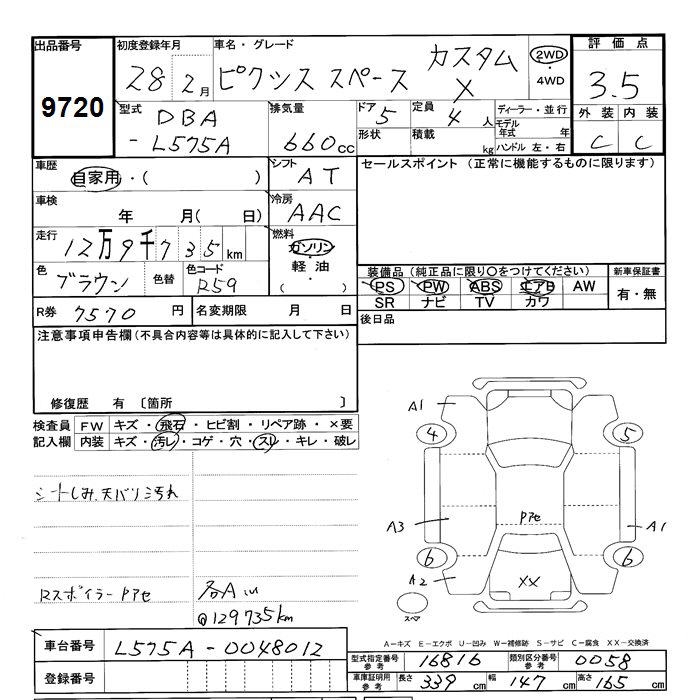 出品番号 初度登録年月 車名・グレード 評価点
9720
28 2月 ピクシス スペース カスタム X
2WD ・ 4WD
3.5
外装 内装
C C
型式 DBA -L575A 排気量 660cc
ドア 5 定員 4人 ディーラー・並行
形状 積載 kg モデル年式 年
ハンドル 左・右
車歴 自家用・( )
シフト AT
セールスポイント (正常に機能するものに限ります)
車検 年 月( 日)
冷房 AAC
走行 12万9千735km
燃料 ガソリン ・ 軽油 ( )
色 ブラウン 色替 色コード R59
装備品 (純正品に限り○をつけてください) 新車保証書
PS PW ABS エアB AW 有・無
SR ナビ TV カワ
R券 7570円 名変期限 月 日
後日品
注意事項申告欄(不具合内容等は具体的に記入して下さい)
修復歴 有 〔箇所 〕
検査員 FW キズ・飛石・ヒビ割・リペア跡・×要
記入欄 内装 キズ・汚レ・コゲ・穴・スレ・キレ・破レ
シートしみ、天バリミ汚れ
Rスポイラー Pアセ
各A
@129735km
A1
4 5
A3 Pアセ A1
6 6
A2 XX
スペア
A-キズ E-エクボ U-凹み W-補修跡 S-サビ C-腐食 XX-交換済
車台番号 L575A-0048012
登録番号
型式指定番号 参考 16816 類別区分番号 参考 0058
車庫証明用 参考 長さ 339cm 幅 147cm 高さ 165cm